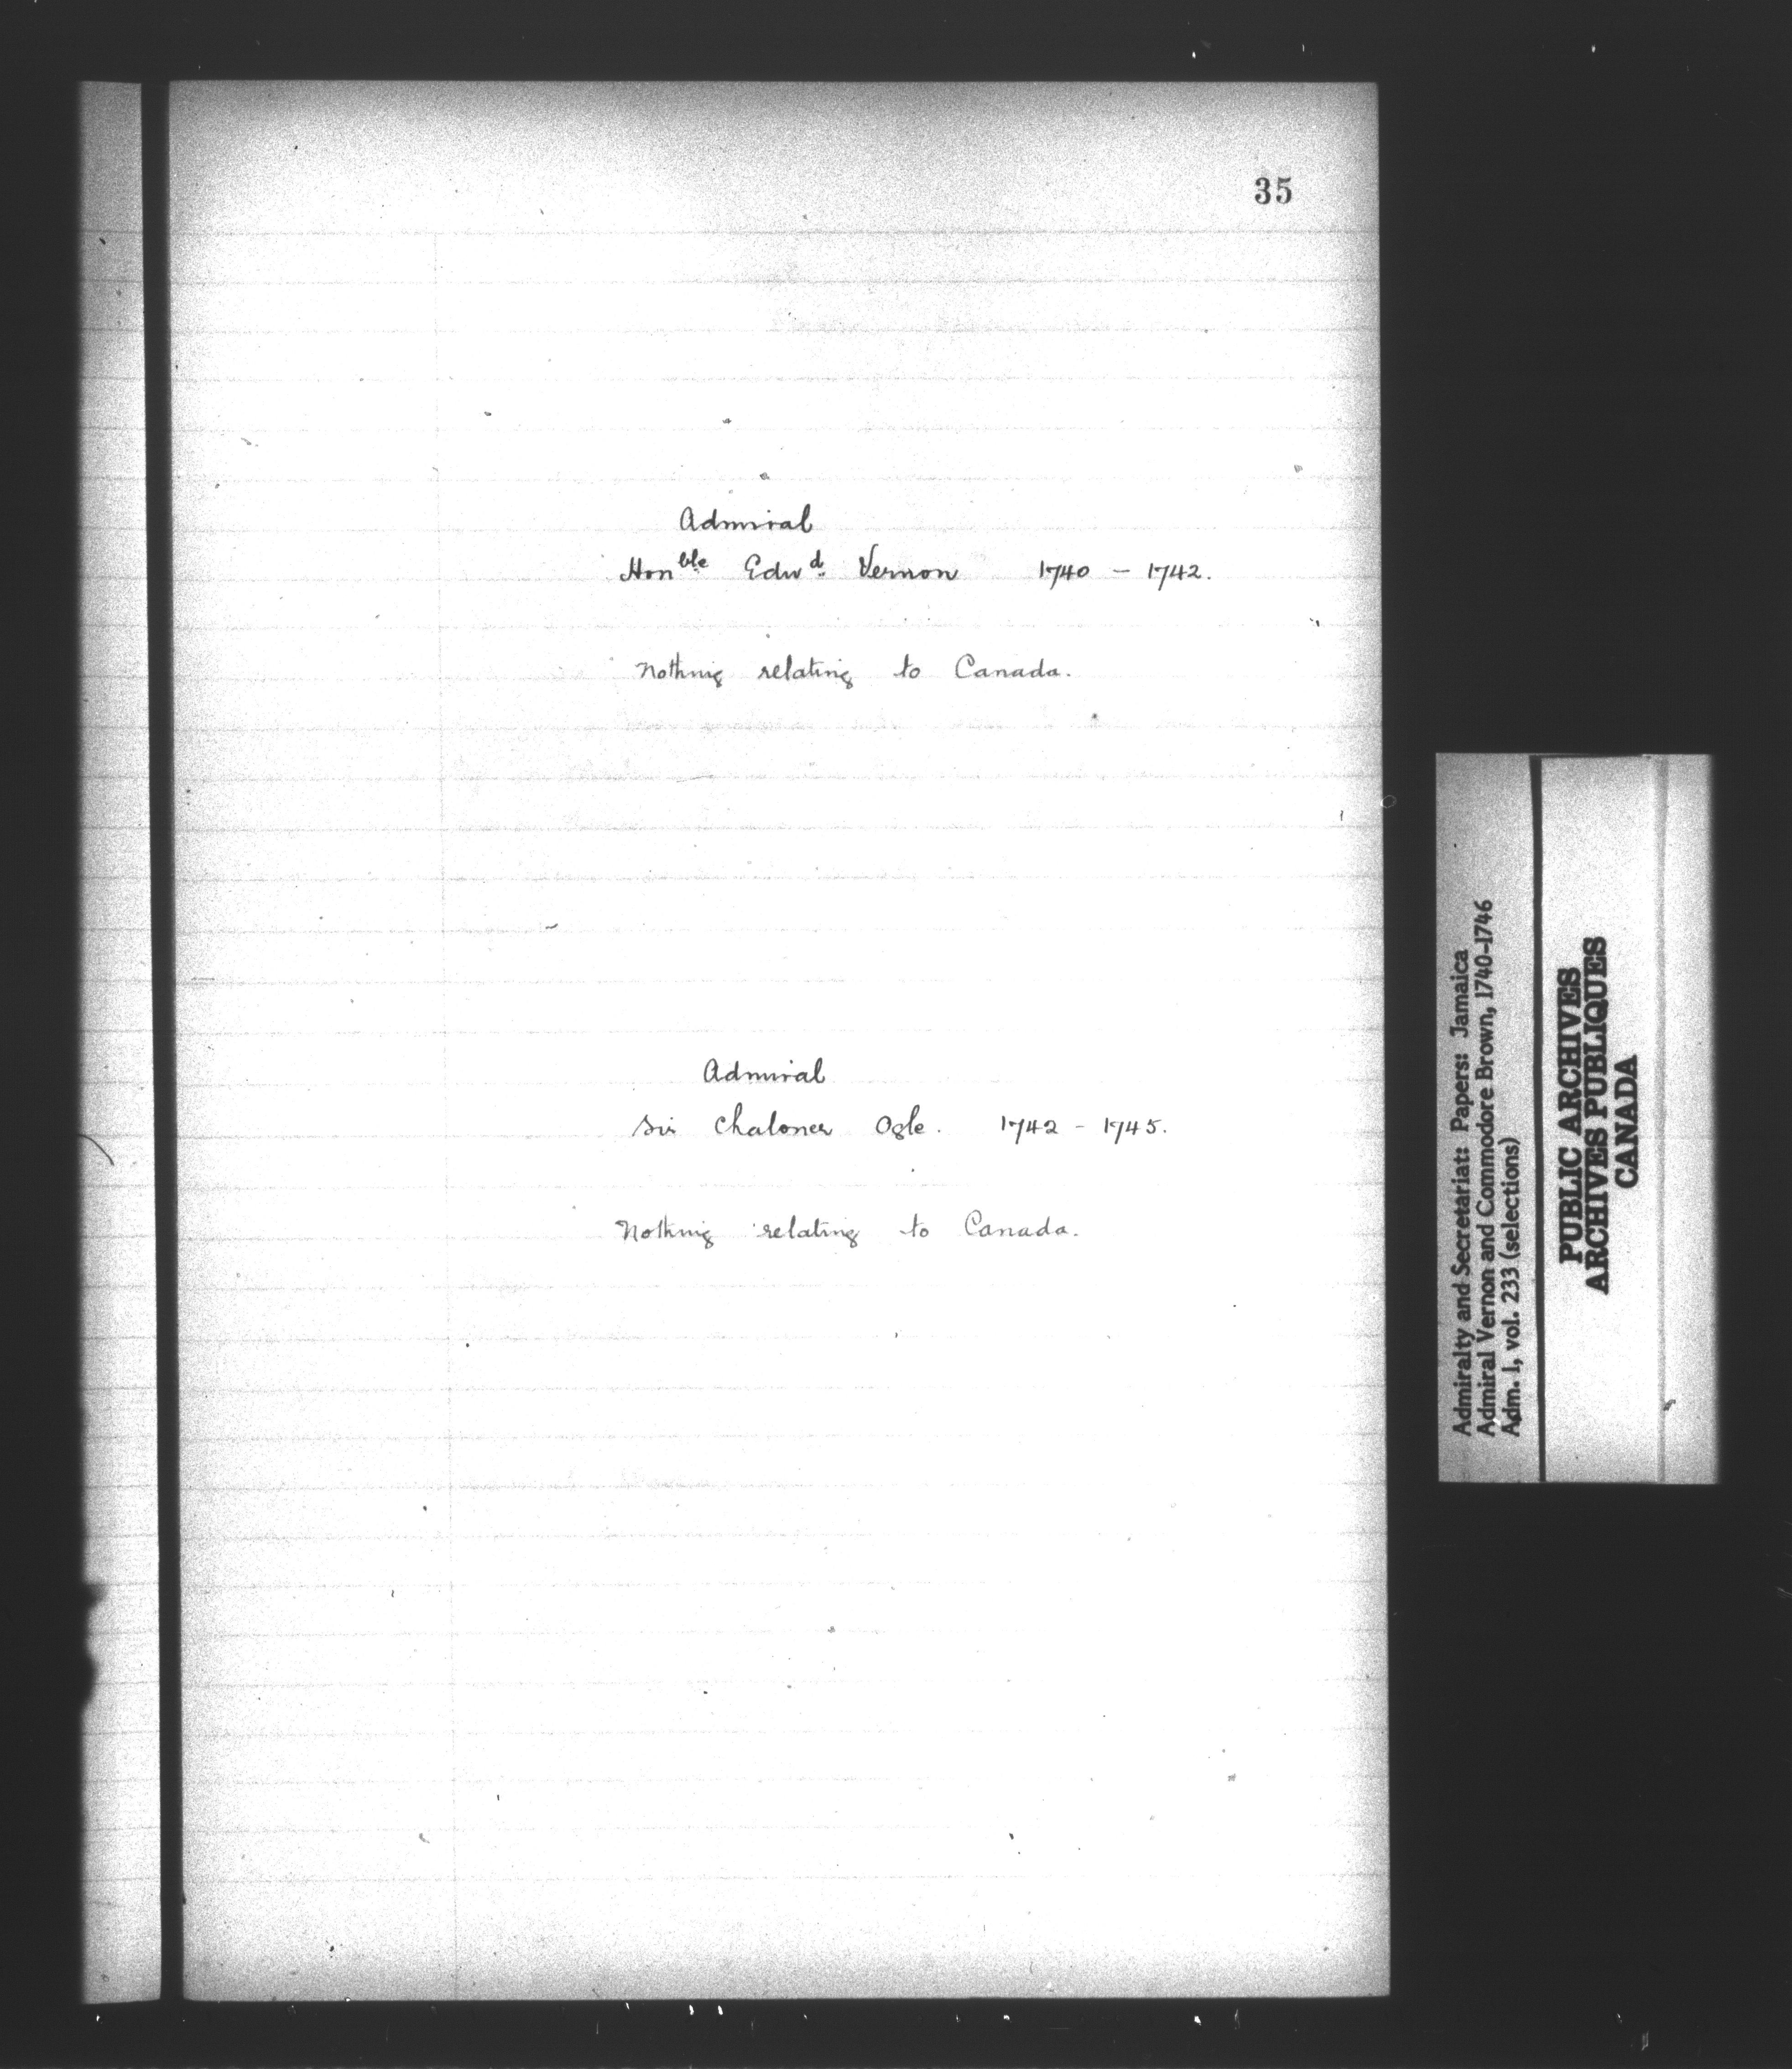 35
Admiral
Honble Edwd. Vernon 1740 - 1742.
Nothing relating to Canada.
Admiral
Sir Chaloner Ogle. 1742 - 1745.
Nothing relating to Canada.
Admiralty and Secretariat: Papers: Jamaica
Admiral Vernon and Commodore Brown, 1740-1746
Adm. 1, vol. 233 (selections)
PUBLIC ARCHIVES
ARCHIVES PUBLIQUES
CANADA